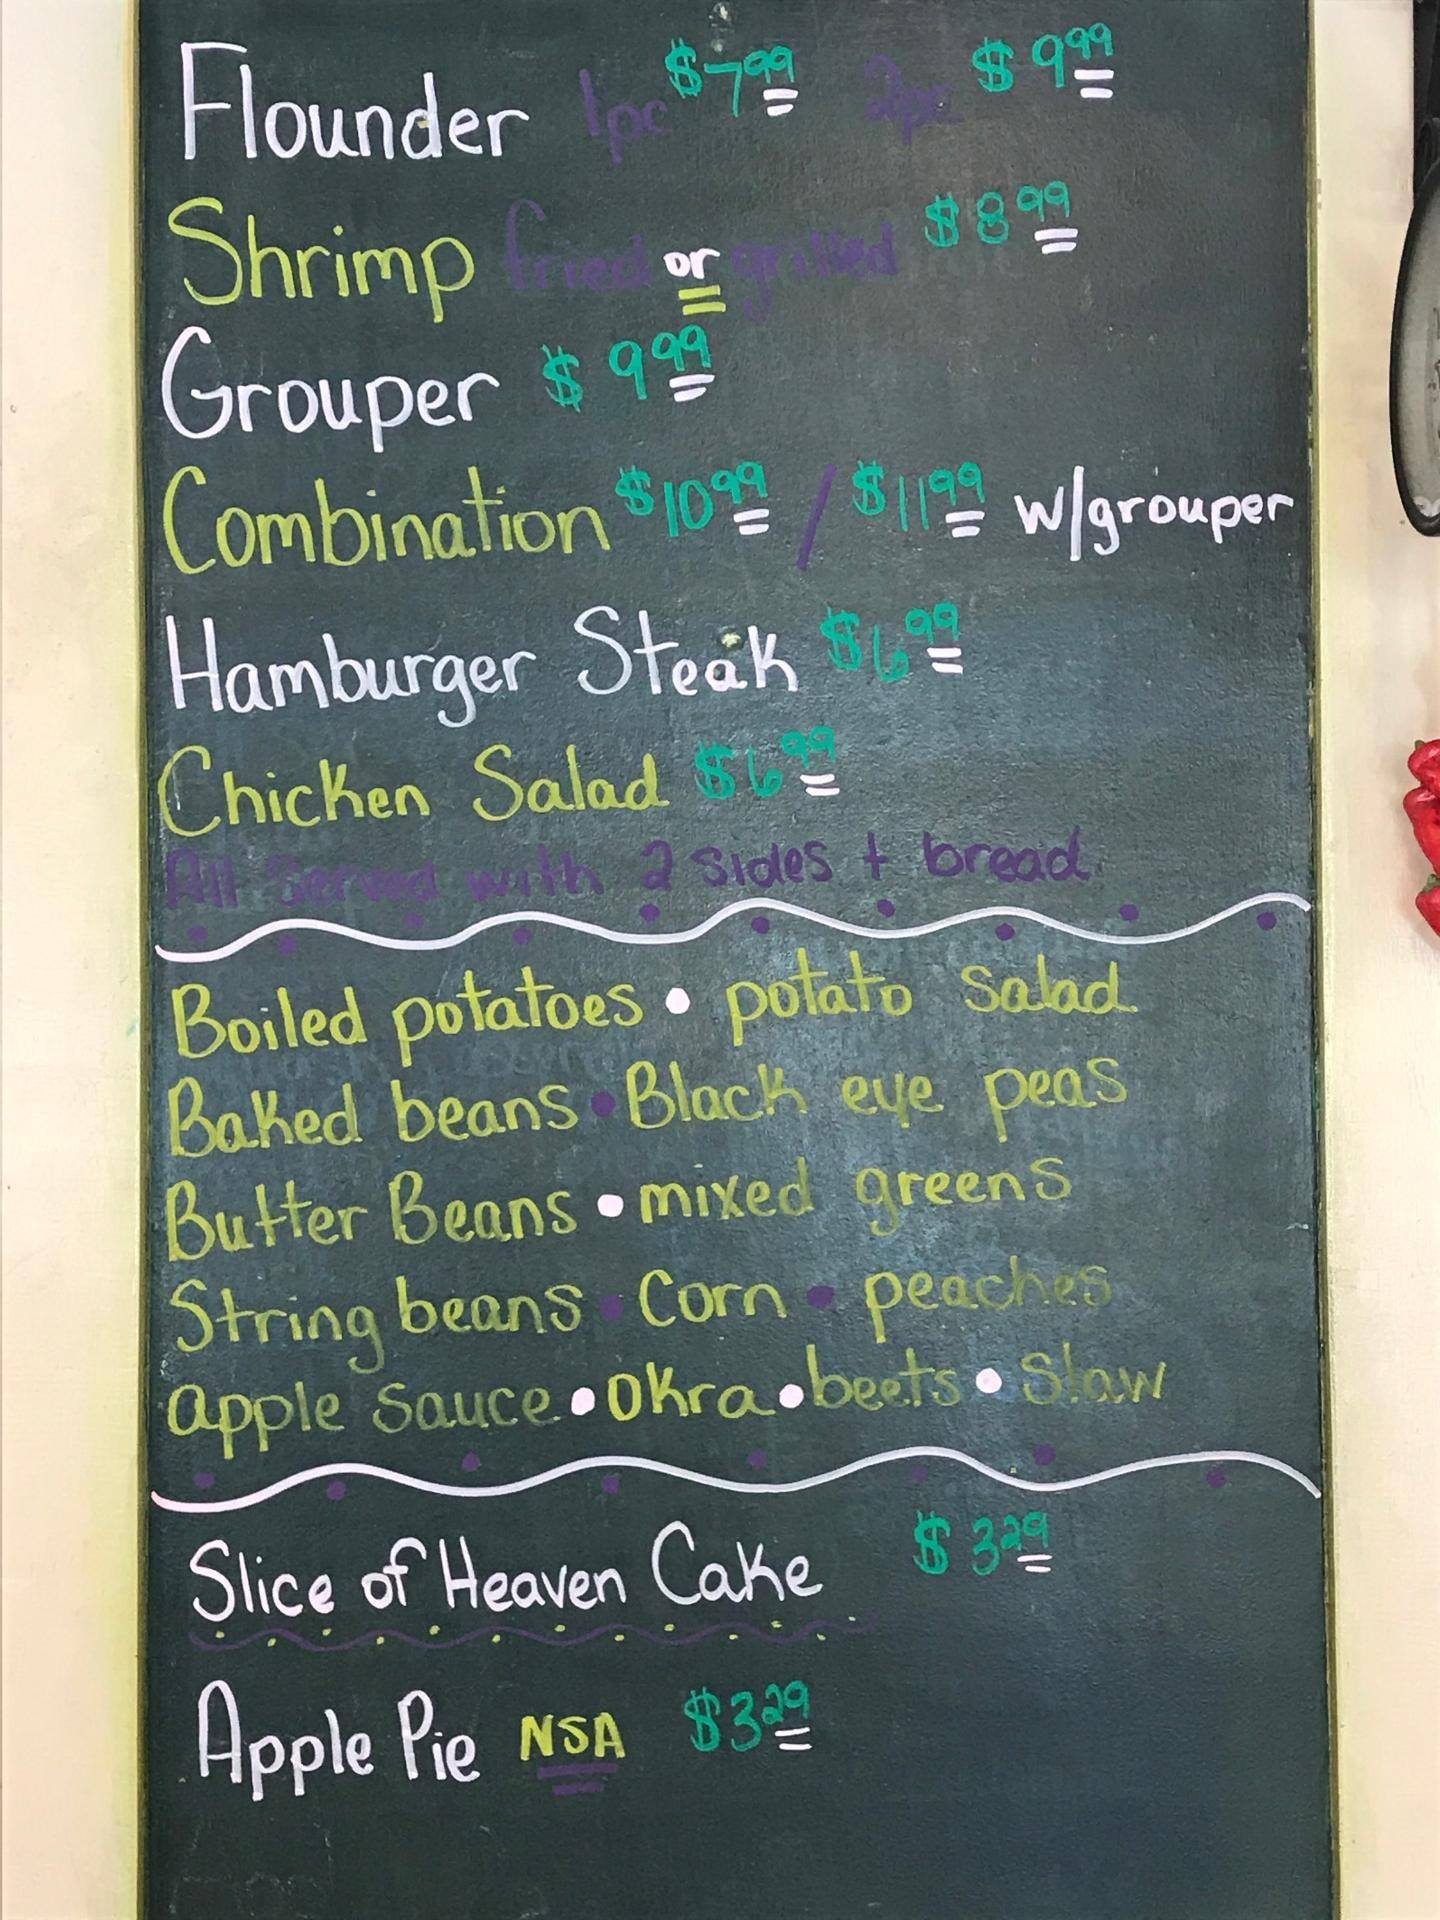 Flounder 1pc $7.99 2pc $9.99
Shrimp fried or grilled $8.99
Grouper $9.99
Combination $10.99 / $11.99 w/grouper
Hamburger Steak $6.99
Chicken Salad $6.99
All Served with 2 sides + bread
Boiled potatoes • potato salad
Baked beans • Black eye peas
Butter Beans • mixed greens
String beans • Corn • peaches
apple sauce • Okra • beets • Slaw
Slice of Heaven Cake $3.29
Apple Pie NSA $3.29